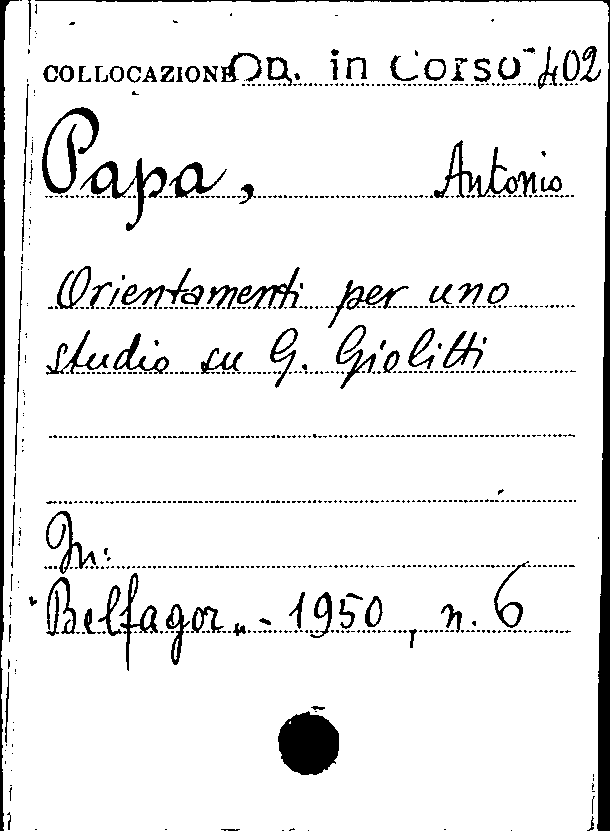 COLLOCAZIONE Op. in Corso 402
Papa, Antonio
Orientamenti per uno
studio su G. Giolitti
In:
"Belfagor" - 1950, n. 6